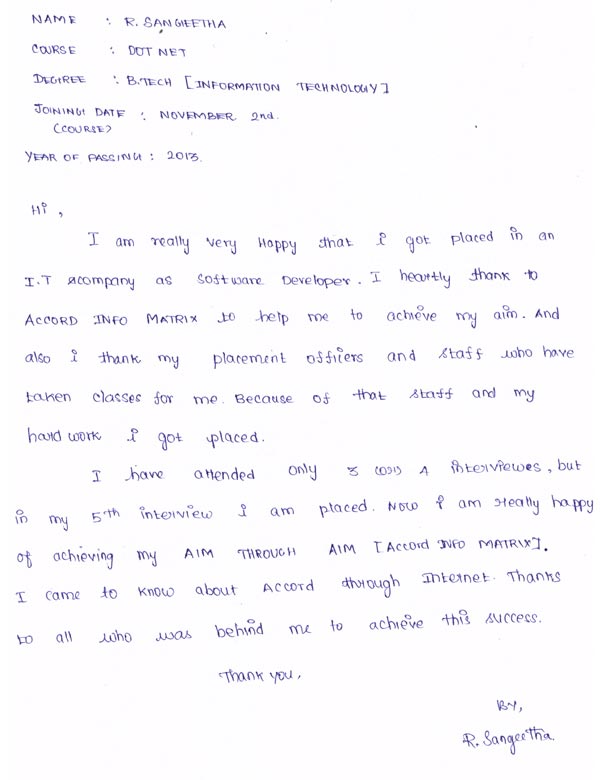 NAME : R. SANGEETHA
COURSE : DOT NET
DEGREE : B.TECH [INFORMATION TECHNOLOGY]
JOINING DATE : NOVEMBER 2nd.
(COURSE)
YEAR OF PASSING : 2013.
Hi,
I am really very Happy that i got placed in an
I.T company as Software Developer. I heartly thank to
ACCORD INFO MATRIX to help me to achieve my aim. And
also i thank my placement officers and staff who have
taken classes for me. Because of that staff and my
hard work i got placed.
I have attended only 3 (or) 4 interviewes, but
in my 5th interview i am placed. Now i am really happy
of achieving my AIM THROUGH AIM [Accord INFO MATRIX].
I came to know about Accord through Internet. Thanks
to all who was behind me to achieve this success.
Thank you,
By,
R. Sangeetha